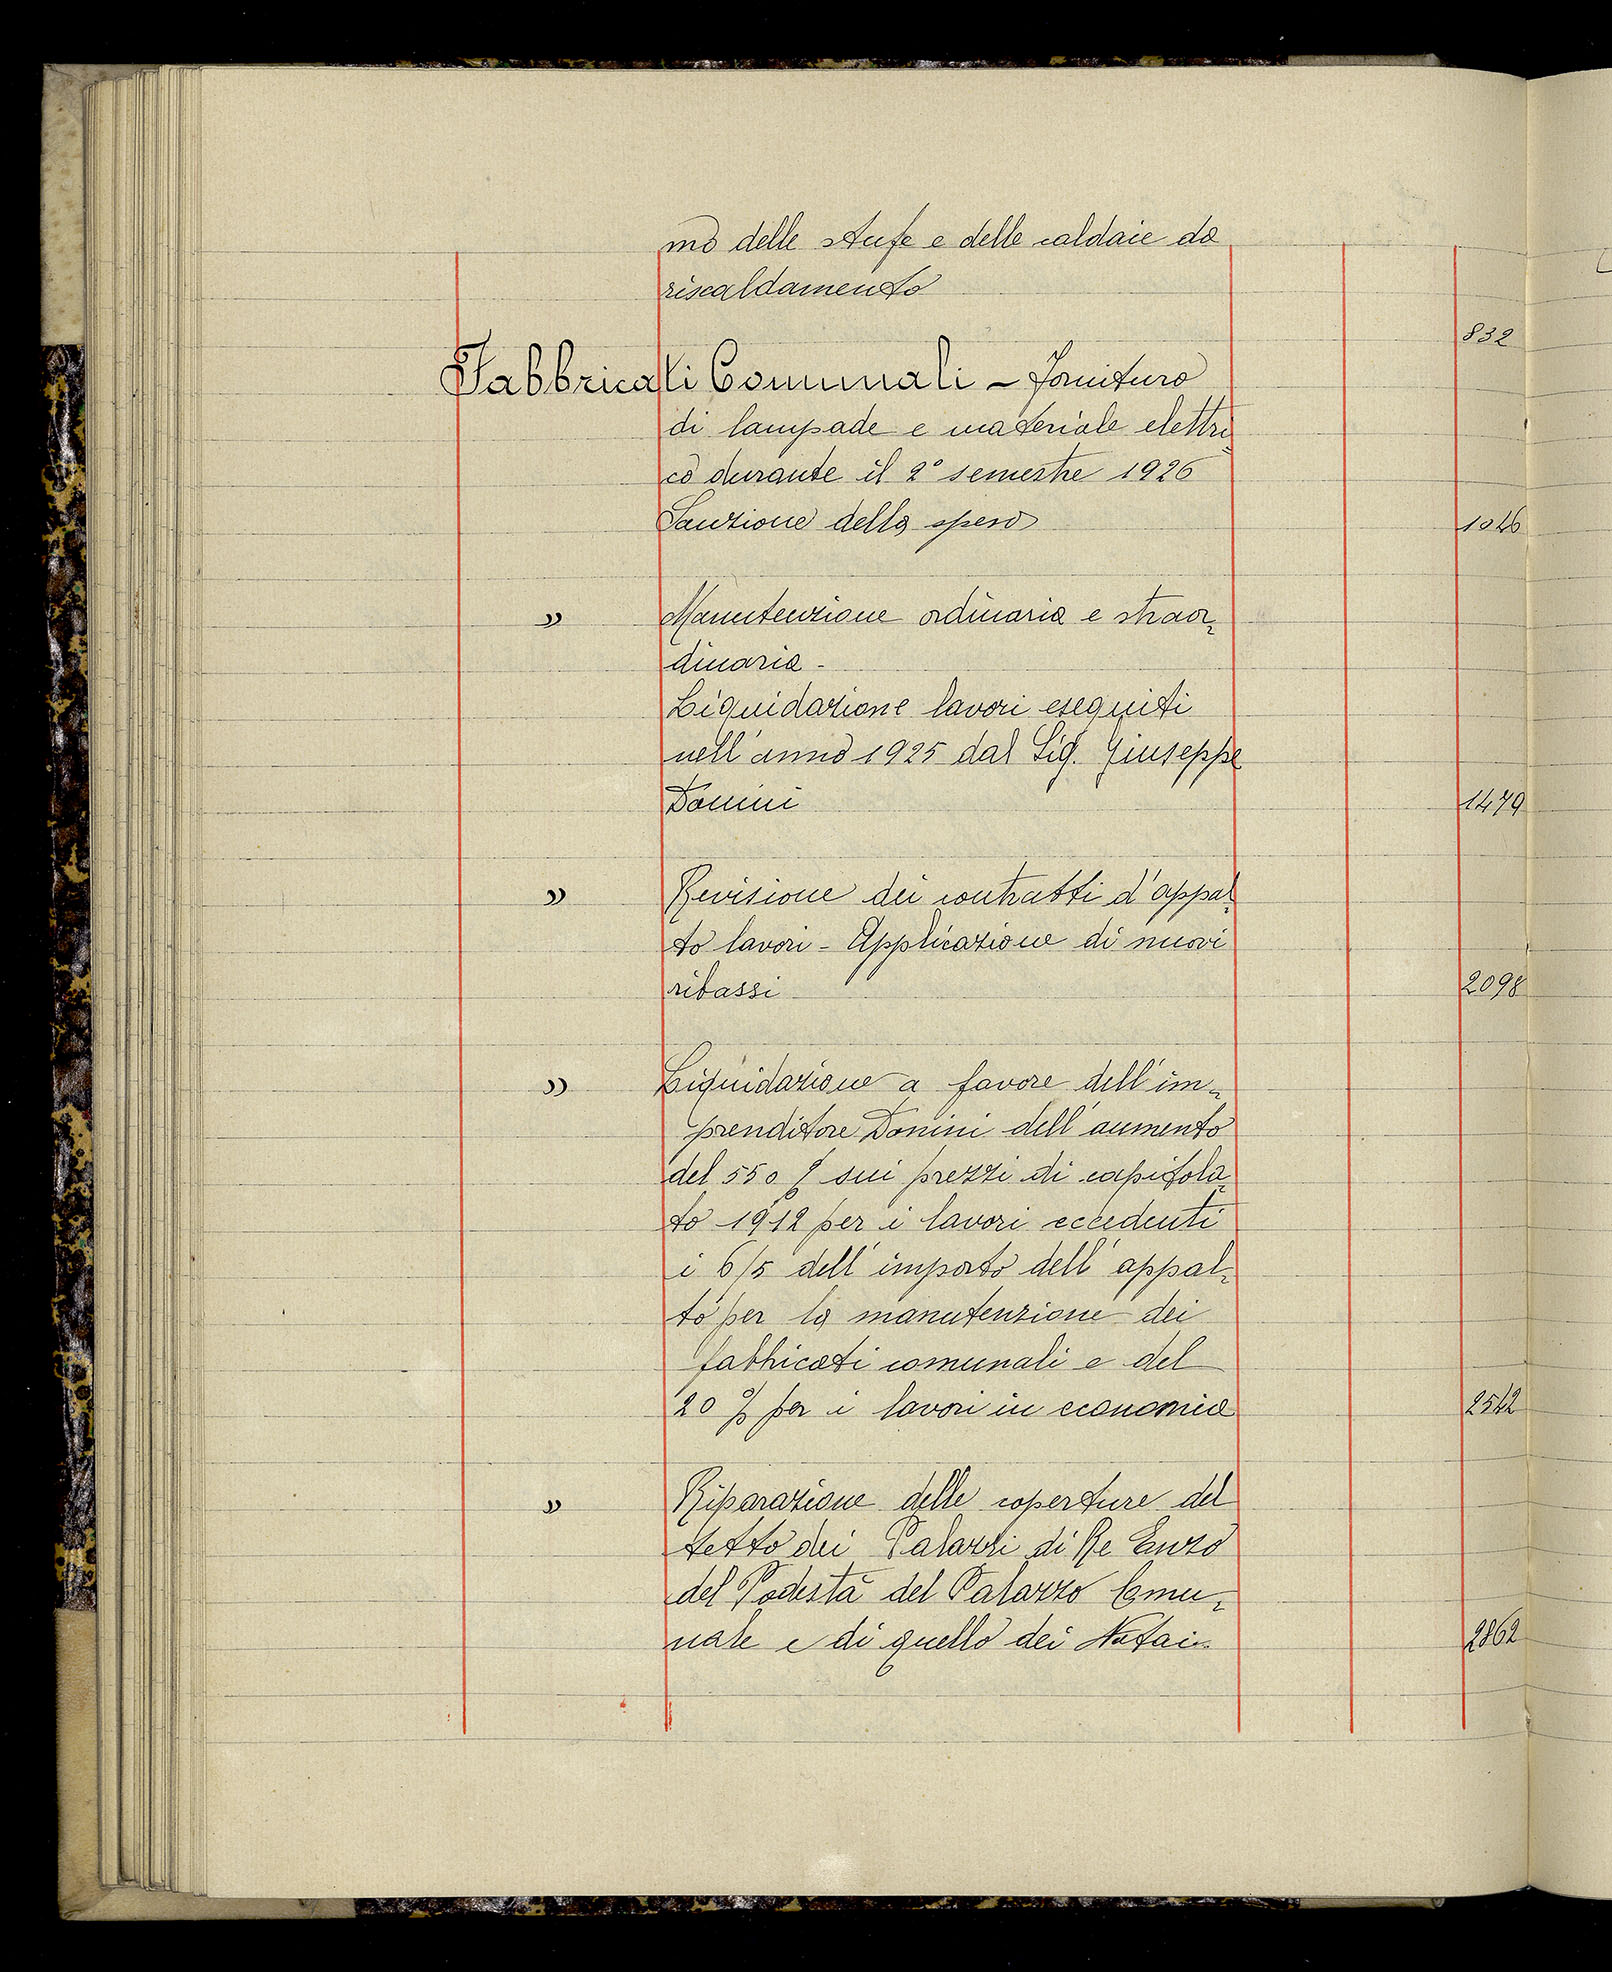 mo delle stufe e delle caldaie da
riscaldamento
832
Fabbricati Comunali - Fornitura
di lampade e materiale elettri-
co durante il 2° semestre 1926
Sanzione della spesa 1046
" Manutenzione ordinaria e straor-
dinaria -
Liquidazione lavori eseguiti
nell'anno 1925 dal Sig. Giuseppe
Donini 1479
" Revisione dei contratti d'appal-
to lavori - Applicazione di nuovi
ribassi 2098
" Liquidazione a favore dell'im-
prenditore Donini dell'aumento
del 550 % sui prezzi di capitola-
to 1912 per i lavori eccedenti
i 6/5 dell'importo dell'appal-
to per la manutenzione dei
fabbricati comunali e del
20 % per i lavori in economia 2542
" Riparazione delle coperture del
tetto dei Palazzi di Re Enzo
del Podestà del Palazzo Comu-
nale e di quello dei Notai 2862